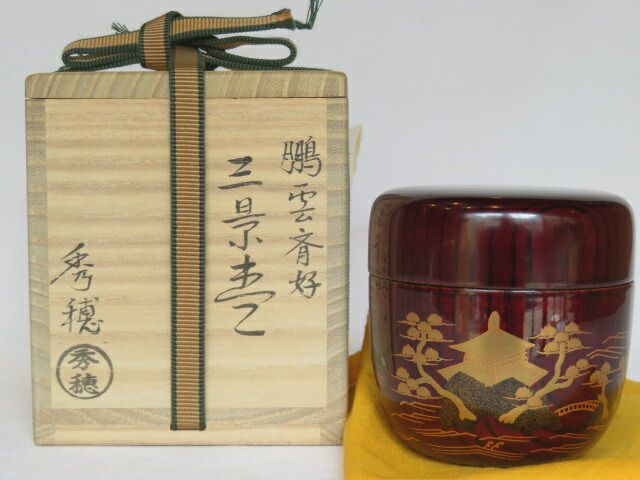 鵬雲斉好
三景棗
秀穂
秀穂